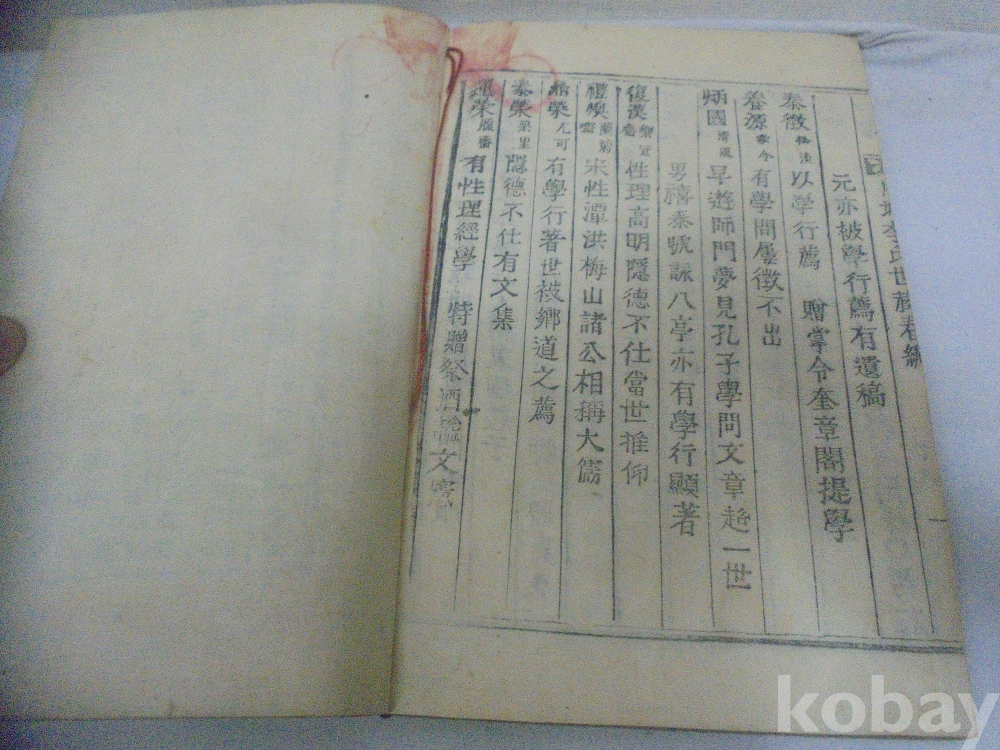 李氏世
元亦被學行薦有遺稿
泰徵 以學行薦 贈掌令奎章閣提學
養源 有學問屢徵不出
炳國 早遊師門夢見孔子學問文章 一世
男禧泰號詠八亭亦有學行顯著
復漢 齋 性理高明隱德不仕當世推仰
禮煥 齋 宋性潭洪梅山諸公相稱大儒
鼎榮 尤可 有學行著世被鄕道之薦
泰榮 栗里 隱德不仕有文集
運榮 齋 有性理經學 特贈祭酒諡文
kobay